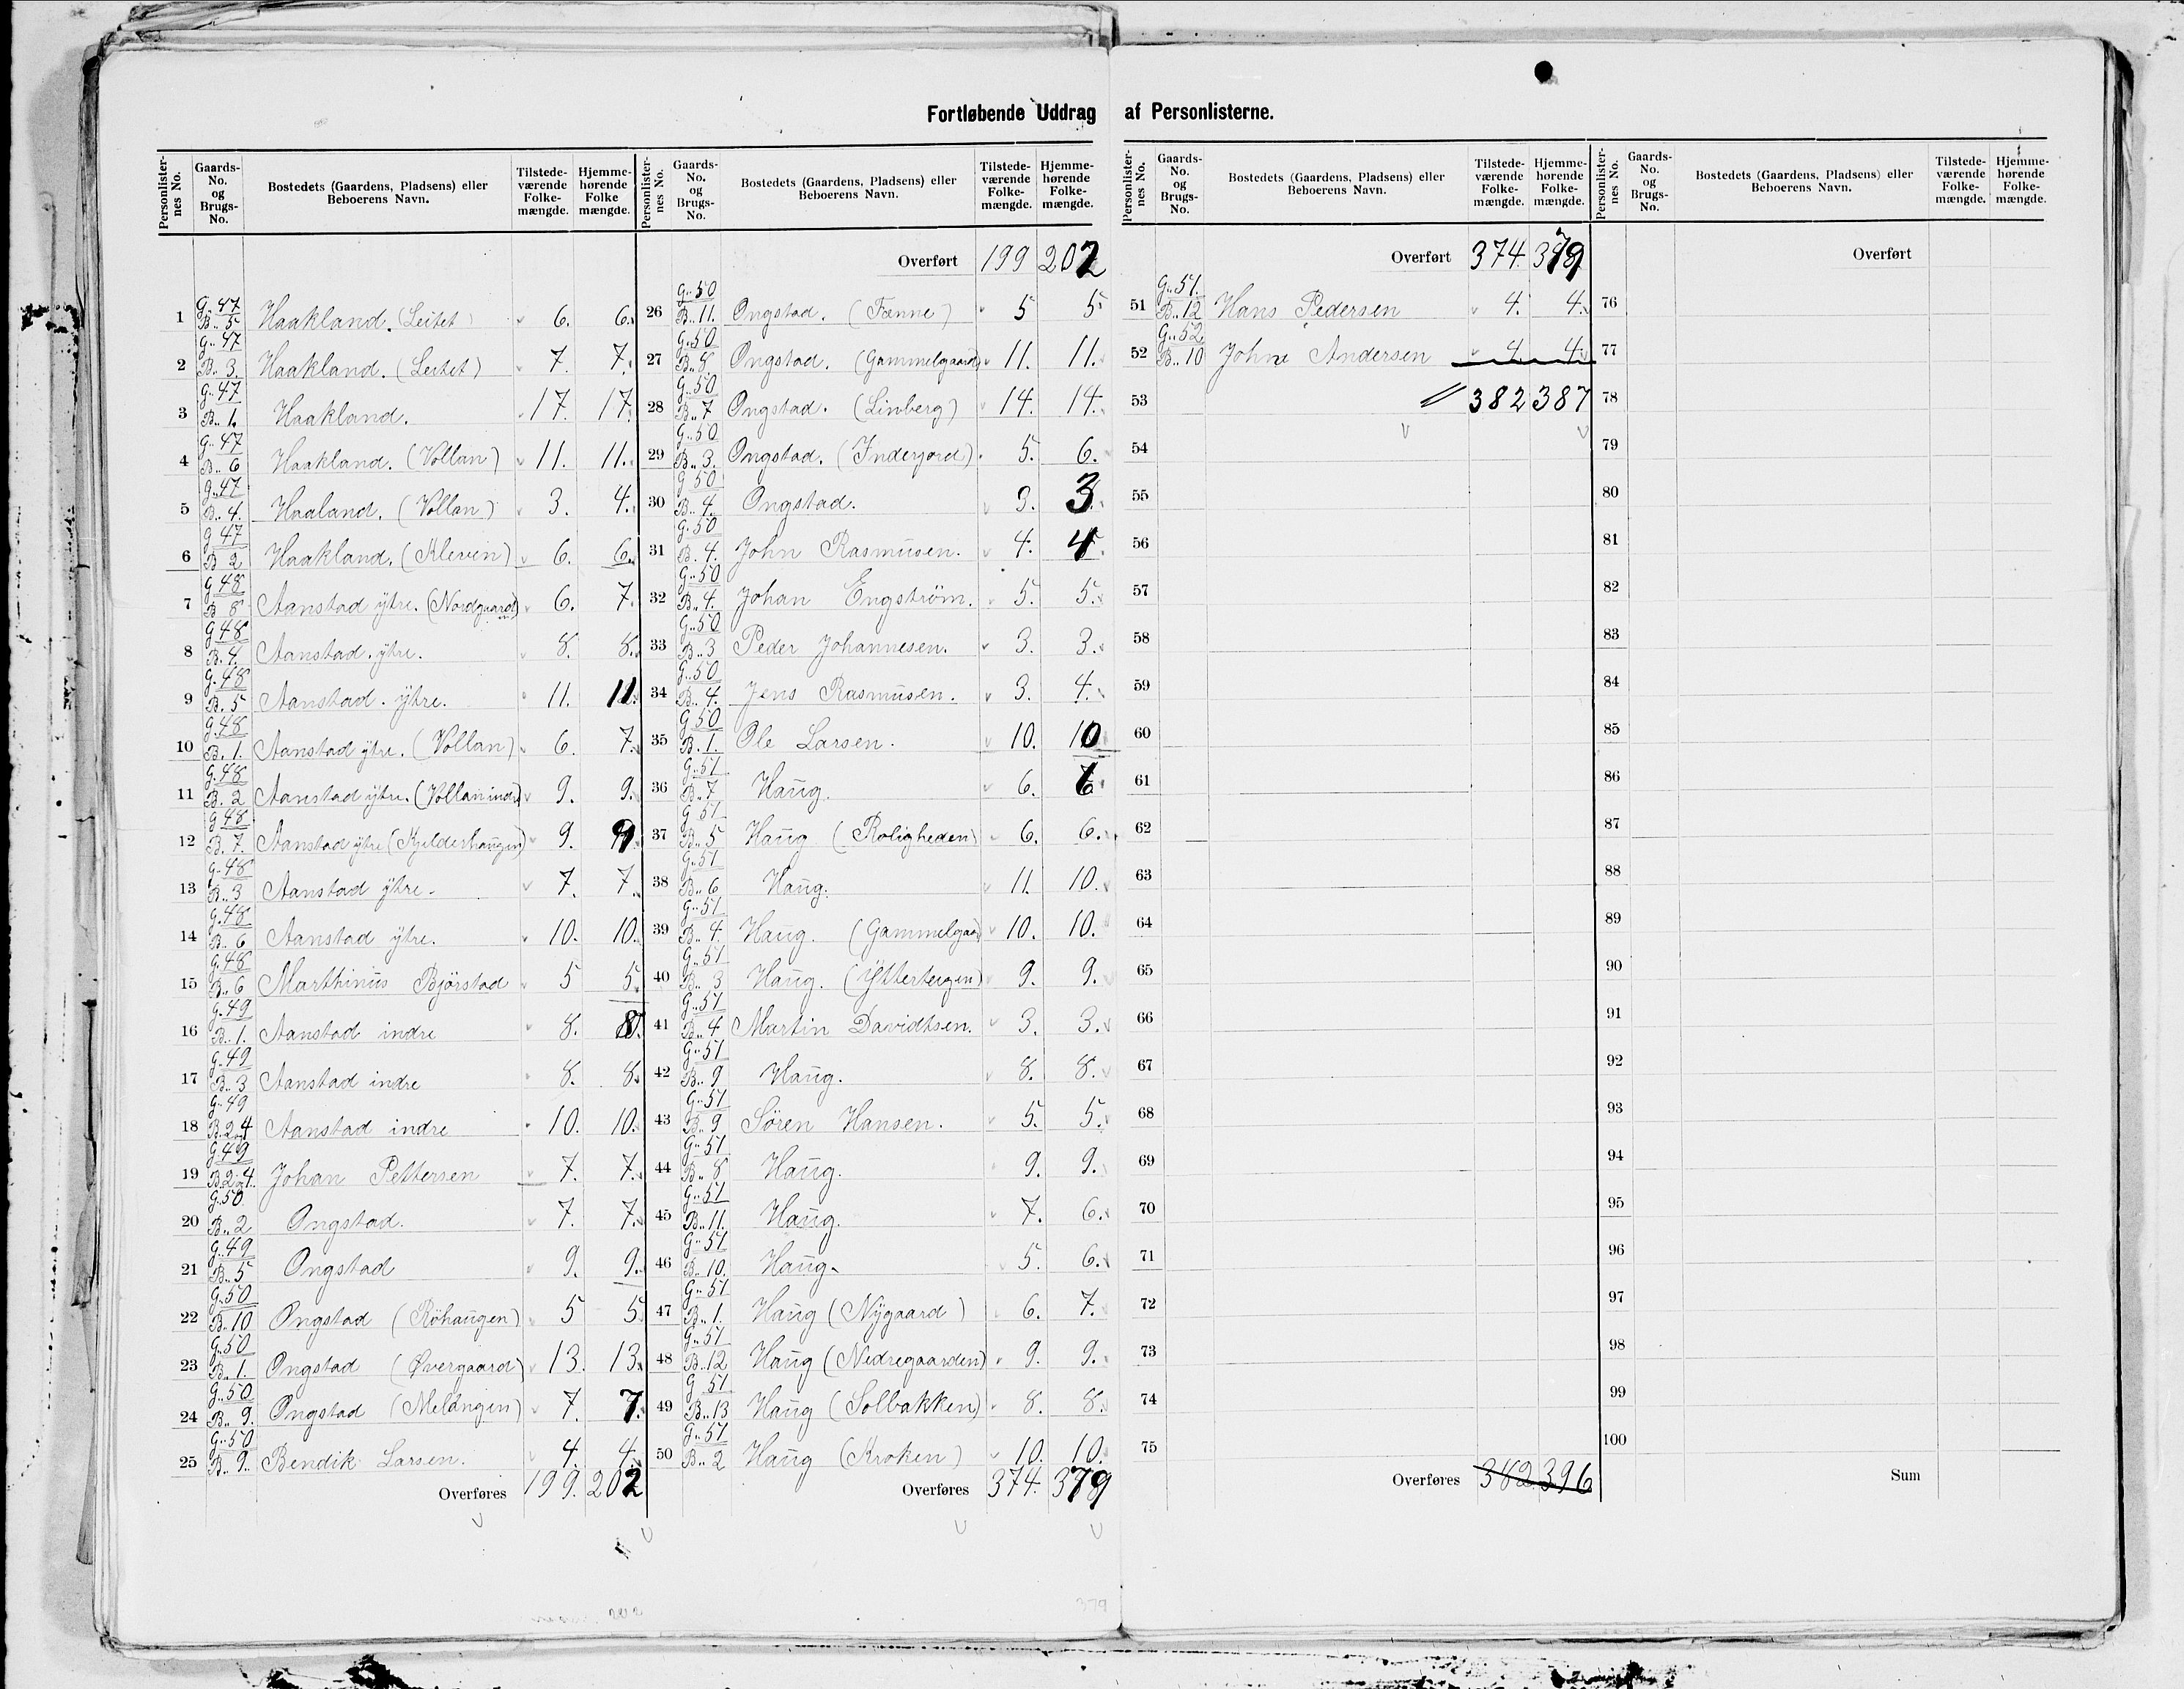 Fortløbende Uddrag af Personlisterne.
Personlisternes No. Gaards-No. og Brugs-No. Bostedets (Gaardens, Pladsens) eller Beboerens Navn. Tilstedeværende Folkemængde. Hjemmehørende Folkemængde.
1 G. 47 B. 5 Haakland. (Leitet) 6. 6.
2 G. 47 B. 3. Haakland. (Leitet) 7. 7.
3 G. 47 B. 1. Haakland. 17. 17.
4 G. 47 B. 6 Haakland. (Vollan) 11. 11.
5 G. 47 B. 4. Haaland. (Vollan) 3. 4.
6 G 47 B 2 Haakland. (Kleven) 6. 6.
7 G. 48 B 8 Aanstad ytre. (Nordgaard) 6. 7.
8 G. 48 B. 4. Aanstad. ytre. 8. 8.
9 G. 48 B. 5 Aanstad. ytre. 11. 11.
10 G. 48 B. 1. Aanstad ytre. (Vollan) 6. 7.
11 G. 48 B. 2 Aanstad ytre. (Vollan indre) 9. 9.
12 G. 48 B. 7. Aanstad ytre (Kjelderhaugen) 9. 9
13 G. 48 B. 3 Aanstad ytre. 7. 7.
14 G. 48 B. 6 Aanstad ytre. 10. 10.
15 G. 48 B. 6 Marthinus Bjørstad 5 5.
16 G. 49 B. 1. Aanstad indre 8. 8.
17 G. 49 B. 3 Aanstad indre 8. 8.
18 G. 49 B. 2 og 4 Aanstad indre 10. 10.
19 G. 49 B. 2 og 4. Johan Pettersen 7. 7.
20 G. 50 B. 2 Ongstad. 7. 7.
21 G. 49 B. 5 Ongstad 9. 9.
22 G. 50 B. 10 Ongstad (Röhaugen) 5 5.
23 G. 50 B. 1. Ongstad (Øvergaard) 13. 13.
24 G. 50 B. 9. Ongstad (Melangen) 7. 7.
25 G. 50 B. 9. Bendik Larsen. 4. 4.
Overføres 199. 202
202
Personlisternes No. Gaards-No. og Brugs-No. Bostedets (Gaardens, Pladsens) eller Beboerens Navn. Tilstedeværende Folkemængde. Hjemmehørende Folkemængde.
Overført 199 202
26 G. 50 B. 11. Ongstad. (Fænne) 5 5.
27 G. 50 B. 8 Ongstad. (Gammelgaard) 11. 11.
28 G. 50 B. 7 Ongstad. (Linberg) 14. 14.
29 G. 50 B. 3. Ongstad. (Inderjord) 5. 6.
30 G 50 B. 4. Ongstad. 3. 3
31 G. 50 B. 4. John Rasmusen. 4. 4
32 G. 50 B. 4. Johan Engström. 5. 5.
33 G. 50 B. 3 Peder Johannesen. 3. 3.
34 G. 50 B. 4. Jens Rasmusen. 3. 4.
35 G 50 B. 1. Ole Larsen. 10. 10
36 G. 51 B. 7 Haug. 6. 6
37 G 51 B. 5 Haug (Roligheden) 6. 6.
38 G. 51 B. 6 Haug. 11. 10.
39 G. 51 B. 4. Haug. (Gammelgaar) 10. 10.
40 G. 51 B. 3 Haug. (Ytterteigen) 9. 9.
41 G. 51 B. 4 Martin Davidtsen. 3. 3.
42 G. 51 B. 9 Haug. 8. 8.
43 G. 51 B. 9 Sören Hansen. 5. 5.
44 G. 51 B. 8 Haug. 9. 9.
45 G. 51 B. 11. Haug. 7. 6.
46 G. 51 B. 10. Haug. 5. 6.
47 G. 51 B. 1. Haug (Nygaard) 6. 7.
48 G. 51 B. 12 Haug (Nedregaarden) 9. 9.
49 G 51 B. 13 Haug (Solbakken) 8. 8.
50 G. 51 B. 2 Haug (Kroken) 10. 10.
Overføres 374. 379
379
Personlisternes No. Gaards-No. og Brugs-No. Bostedets (Gaardens, Pladsens) eller Beboerens Navn. Tilstedeværende Folkemængde. Hjemmehørende Folkemængde.
Overført 374. 379
51 G. 51. B. 12 Hans Pedersen 4. 4.
52 G. 52 B. 10 Johne Andersen 4. 4.
53 382 387
54
55
56
57
58
59
60
61
62
63
64
65
66
67
68
69
70
71
72
73
74
75
Overføres 382 396
Personlisternes No. Gaards-No. og Brugs-No. Bostedets (Gaardens, Pladsens) eller Beboerens Navn. Tilstedeværende Folkemængde. Hjemmehørende Folkemængde.
Overført
76
77
78
79
80
81
82
83
84
85
86
87
88
89
90
91
92
93
94
95
96
97
98
99
100
Sum